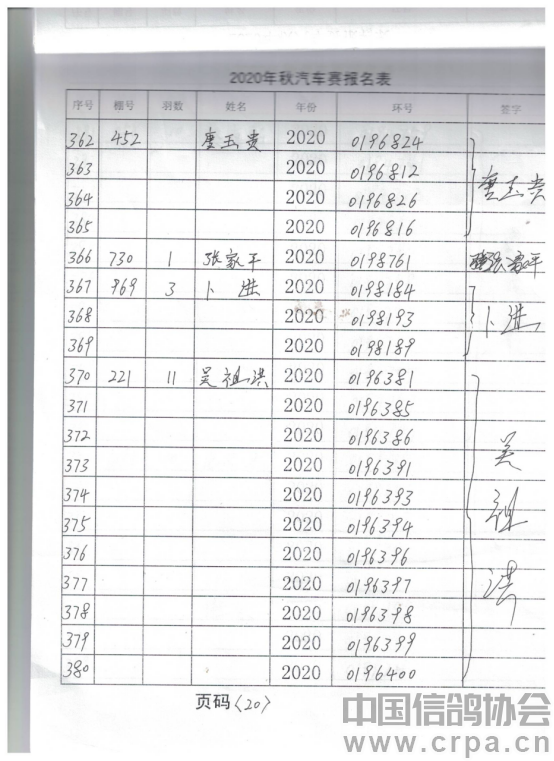 2020年秋汽车赛报名表
序号 棚号 羽数 姓名 年份 环号 签字
362 452 唐玉贵 2020 0196824
363 2020 0196812 唐玉贵
364 2020 0196826
365 2020 0196816
366 730 1 张家平 2020 0198761 张家平
367 969 3 卜进 2020 0198184
368 2020 0198193 卜进
369 2020 0198189
370 221 11 吴祖洪 2020 0196381
371 2020 0196385
372 2020 0196386
373 2020 0196391 吴
374 2020 0196393
375 2020 0196394 祖
376 2020 0196396
377 2020 0196397 洪
378 2020 0196398
379 2020 0196399
380 2020 0196400
页码(20)
中国信鸽协会
www.crpa.cn